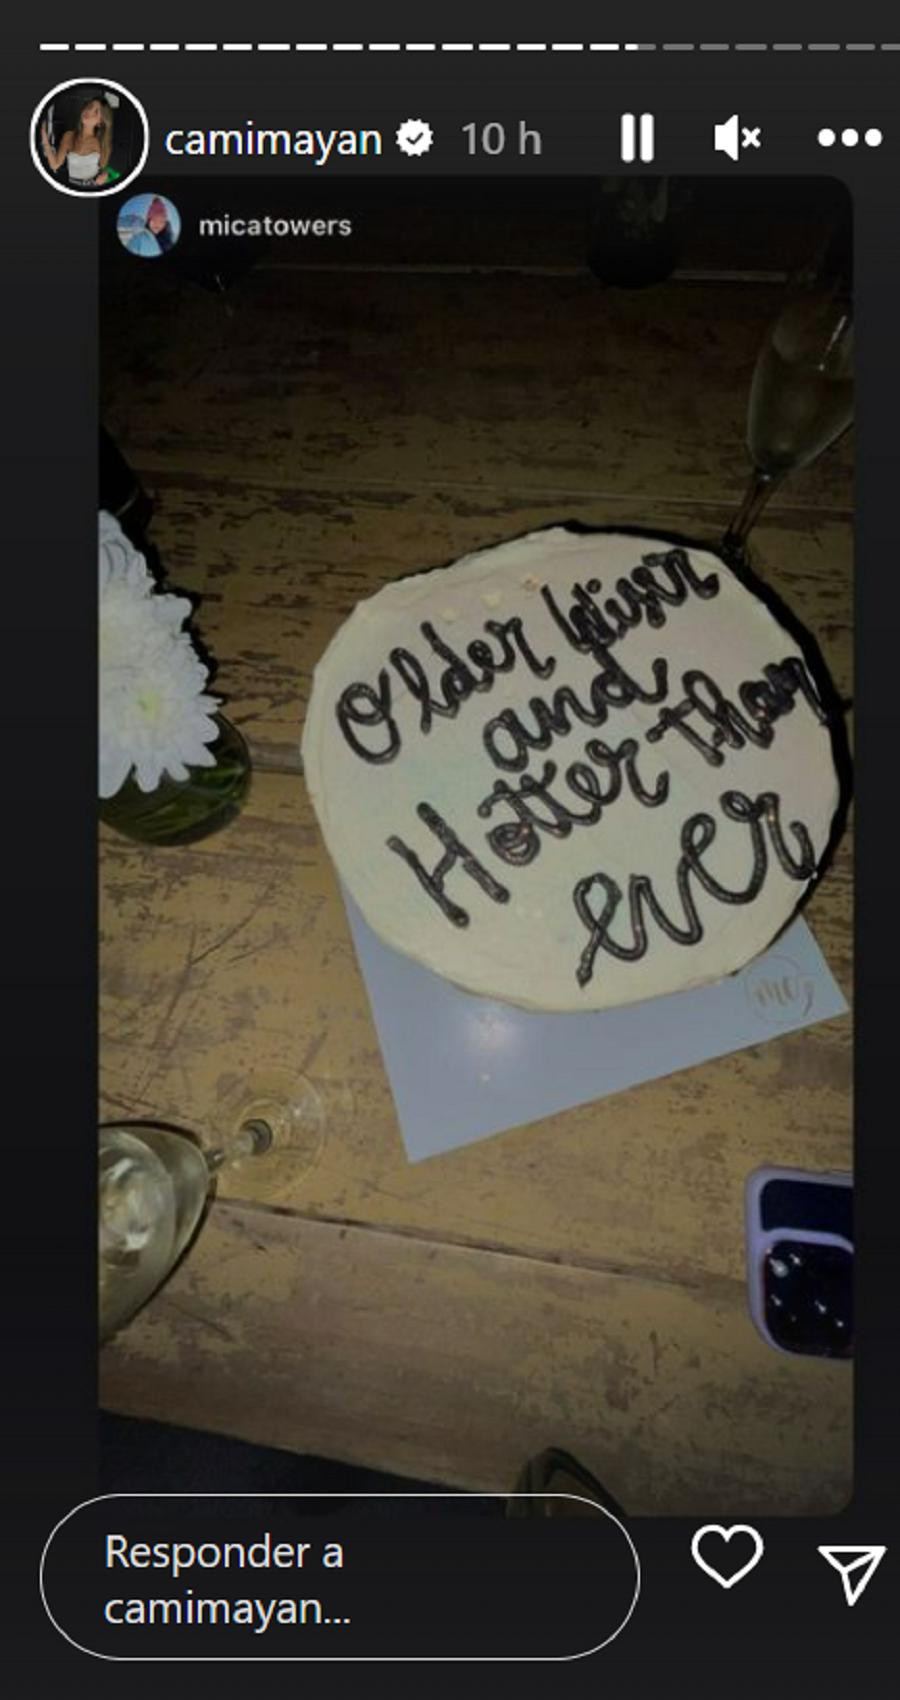 camimayan 10 h
micatowers
Older Wiser
and
Hotter than
ever
mc
Responder a
camimayan...